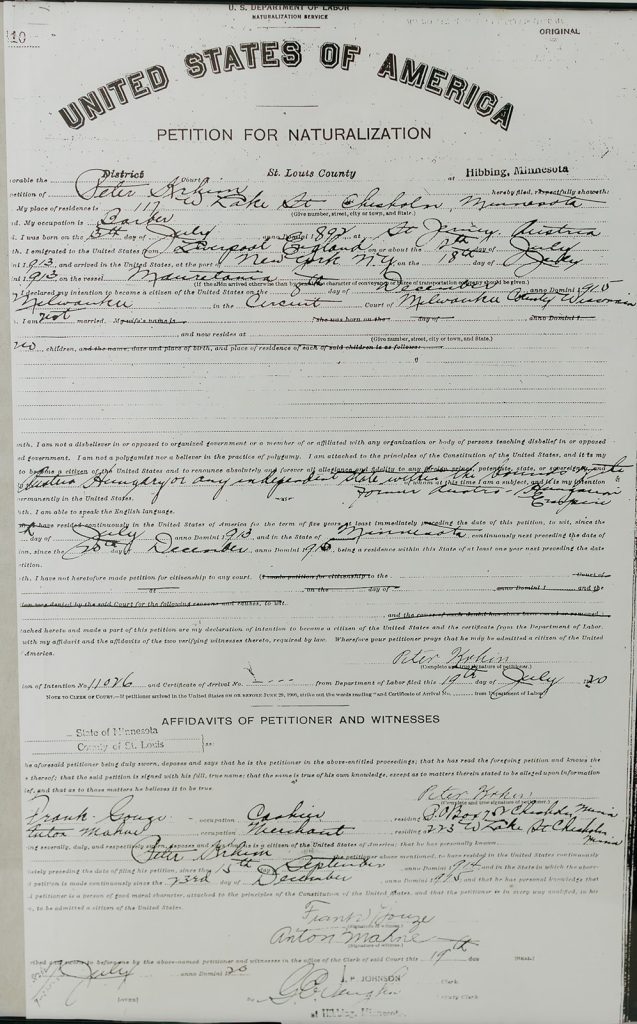 U. S. DEPARTMENT OF LABOR
NATURALIZATION SERVICE
10
ORIGINAL
UNITED STATES OF AMERICA
PETITION FOR NATURALIZATION
orable the District Court St. Louis County at Hibbing, Minnesota
etition of Peter hereby filed, respectfully showeth:
My place of residence is 117 W Lake St Chisholm Minnesota
(Give number, street, city or town, and State.)
d. My occupation is Barber
d. I was born on the 5th day of July anno Domini 1892 at Austria
th. I emigrated to the United States from Liverpool England on or about the 12th day of July
ni 1913 and arrived in the United States, at the port of New York N.Y. on the 18th day of July
ni 1913 on the vessel Mauretania
(If the alien arrived otherwise than by vessel, the character of conveyance or name of transportation company should be given.)
I declared my intention to become a citizen of the United States on the 8th day of December anno Domini 1915
Milwaukee in the Circuit Court of Milwaukee County Wisconsin
I am not married. My wife's name is she was born on the day of anno Domini 1
and now resides at
(Give number, street, city or town, and State.)
no children, and the name, date and place of birth, and place of residence of each of said children is as follows:
nth. I am not a disbeliever in or opposed to organized government or a member of or affiliated with any organization or body of persons teaching disbelief in or opposed
ed government. I am not a polygamist nor a believer in the practice of polygamy. I am attached to the principles of the Constitution of the United States, and it is my
to become a citizen of the United States and to renounce absolutely and forever all allegiance and fidelity to any foreign prince, potentate, state, or sovereignty, and
Austria Hungary or any independent state within the bounds of the
of whom at this time I am a subject, and it is my intention
former Austro-Hungarian Empire
ermanently in the United States.
th. I am able to speak the English language.
have resided continuously in the United States of America for the term of five years at least immediately preceding the date of this petition, to wit, since the
day of July anno Domini 1913, and in the State of Minnesota, continuously next preceding the date of
on, since the day of December, anno Domini 1915, being a residence within this State of at least one year next preceding the date
tition.
th. I have not heretofore made petition for citizenship to any court. (I made petition for citizenship to the Court of
at on the day of anno Domini 1 and the
ion was denied by the said Court for the following reasons and causes, to wit
and the cause of such denial has since been cured or removed.)
ached hereto and made a part of this petition are my declaration of intention to become a citizen of the United States and the certificate from the Department of Labor
with my affidavit and the affidavits of the two verifying witnesses thereto, required by law. Wherefore your petitioner prays that he may be admitted a citizen of the United
America.
Peter
(Complete and true signature of petitioner.)
ion of Intention No. 11026 and Certificate of Arrival No. from Department of Labor filed this 19th day of July 1920
NOTE TO CLERK OF COURT.—If petitioner arrived in the United States ON OR BEFORE JUNE 29, 1906, strike out the words reading "and Certificate of Arrival No. from Department of Labor."
AFFIDAVITS OF PETITIONER AND WITNESSES
State of Minnesota
County of St. Louis ss:
he aforesaid petitioner being duly sworn, deposes and says that he is the petitioner in the above-entitled proceedings; that he has read the foregoing petition and knows the
thereof; that the said petition is signed with his full, true name; that the same is true of his own knowledge, except as to matters therein stated to be alleged upon information
ief, and that as to those matters he believes it to be true.
Peter
(Complete and true signature of petitioner.)
Frank Gouze occupation Cashier residing Chisholm Minn
Anton Mahne occupation Merchant residing 223 W Lake St Chisholm Minn
ing severally, duly, and respectively sworn, deposes and says that he is a citizen of the United States of America; that he has personally known
Peter the petitioner above mentioned, to have resided in the United States continuously
iately preceding the date of filing his petition, since the 15th day of September anno Domini 1914 and in the State in which the above-
d petition is made continuously since the 23rd day of December, anno Domini 1915 and that he has personal knowledge that
d petitioner is a person of good moral character, attached to the principles of the Constitution of the United States, and that the petitioner is in every way qualified, in his
n, to be admitted a citizen of the United States.
Frank Gouze
(Signature of witness.)
Anton Mahne
(Signature of witness.)
ribed and sworn to before me by the above-named petitioner and witnesses in the office of the Clerk of said Court this 19th day
July anno Domini 1920
[SEAL]
JOHNSON Clerk
By Deputy Clerk
at Hibbing, Minnesota